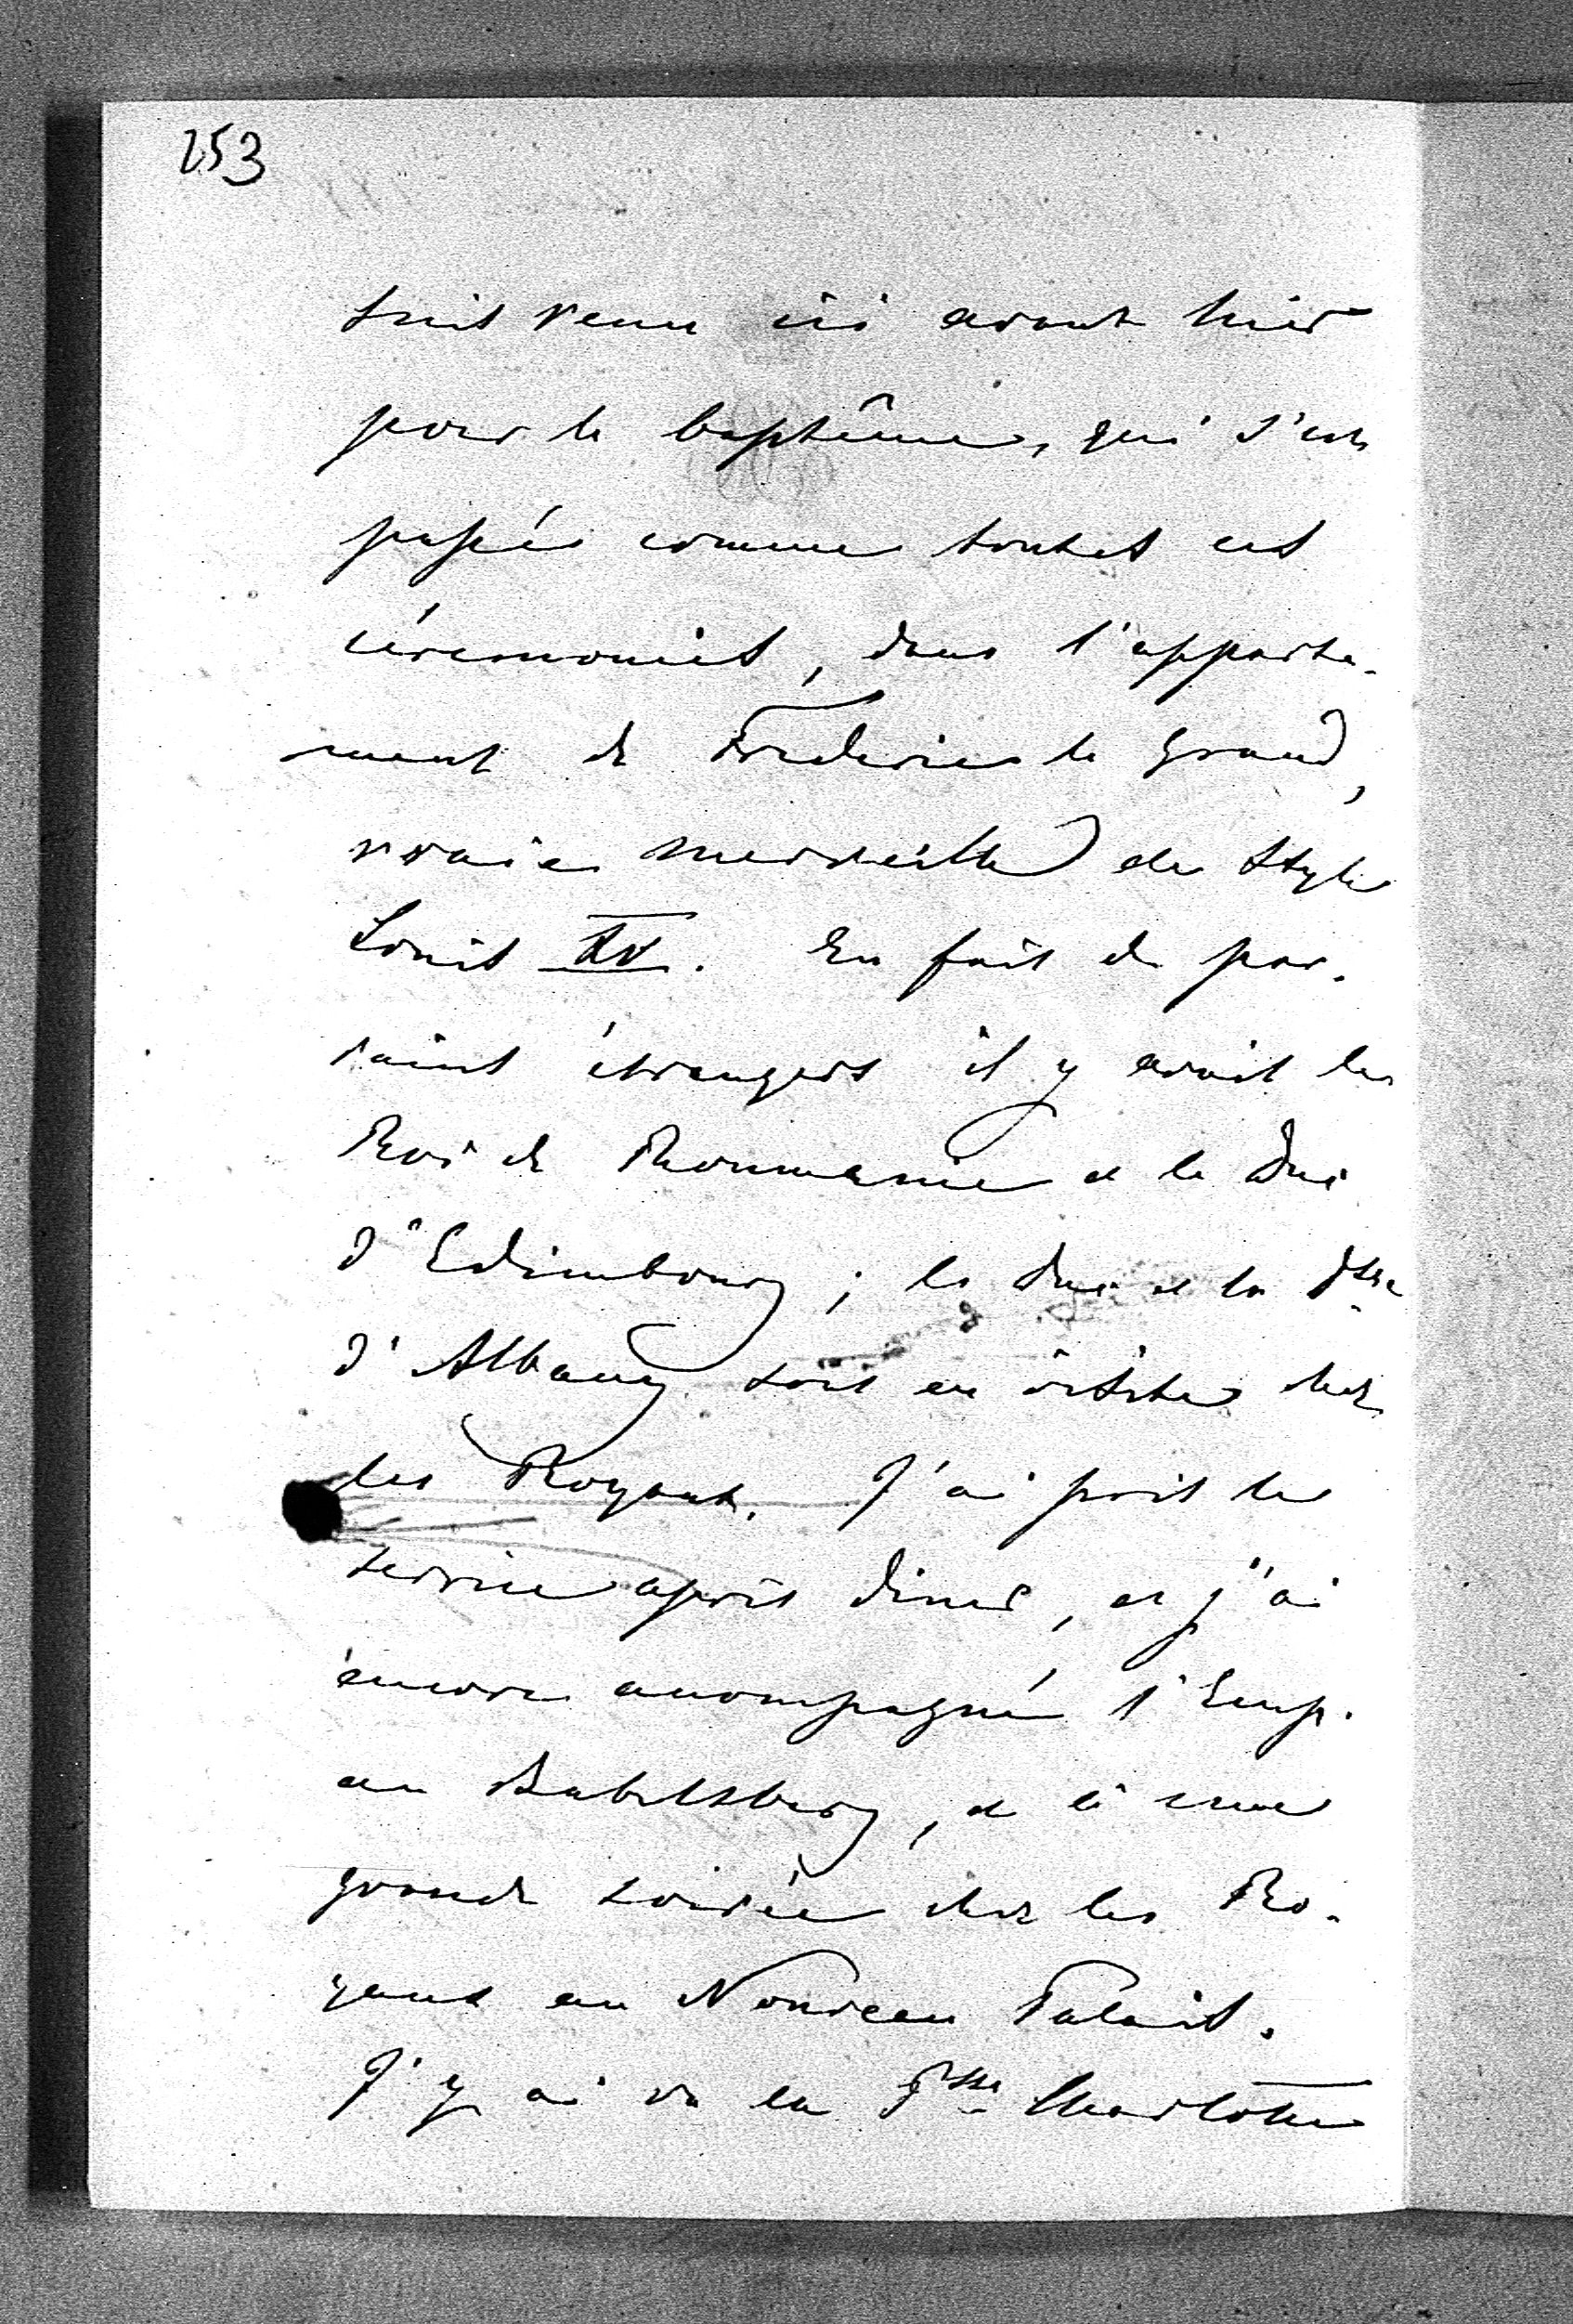 253
suis venu ici avant hier
pour le baptême, qui s'est
passée comme toutes ces
céremonies, dans l'apparte-
ment de Frederic le Grand,
vraie merveille de style
Louis XV. En fait de par-
rains étrangers il y avait le
Roi de Roumanie et le Duc
d'Edimbourg; le Duc et la Dsse
d'Albany sont en visite chez
les Royaux. J'ai pris le
service après diner, et j'ai
encore accompagné l'Emp.
au Babelsberg, et à une
grande soirée chez les Ro-
yaux au Nouveau Palais.
J'y ai vu la Psse Charlotte